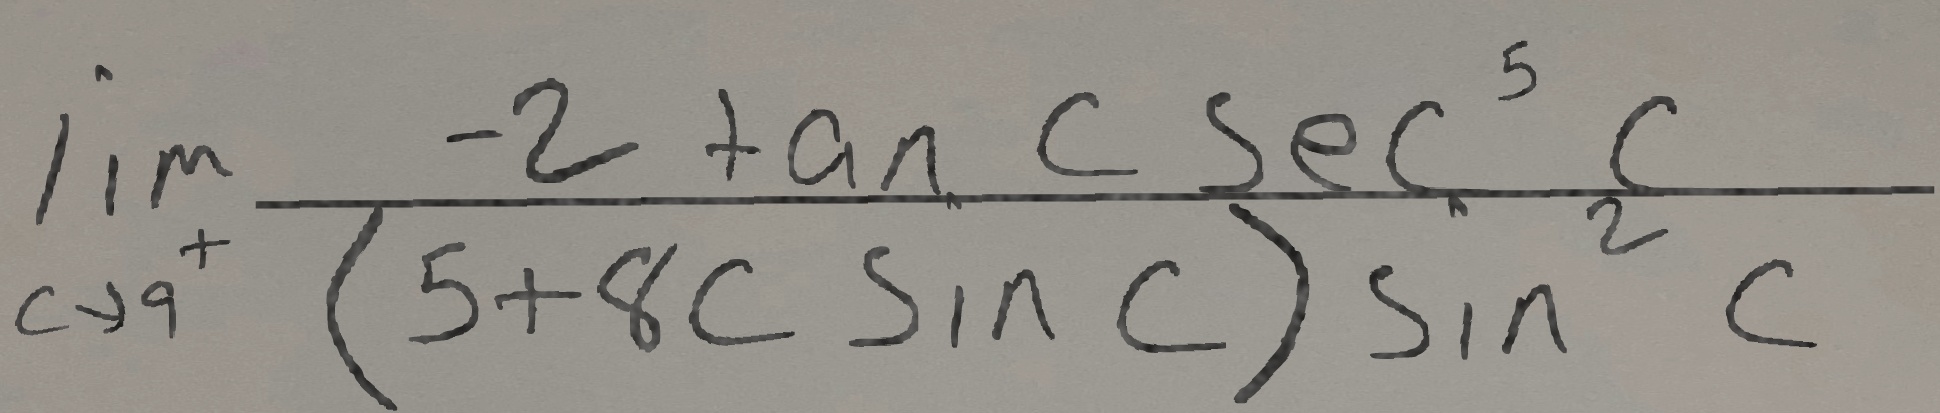 \lim_{c \to 9^+} \frac{-2 \tan c \sec^5 c}{(5+8c \sin c) \sin^2 c}